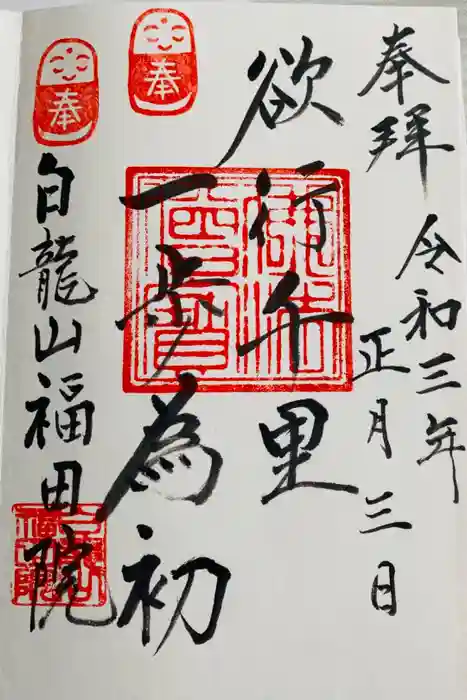 奉拝
令和三年
正月三日
欲行千里
一歩為初
白龍山福田院
奉
奉
佛法僧寶